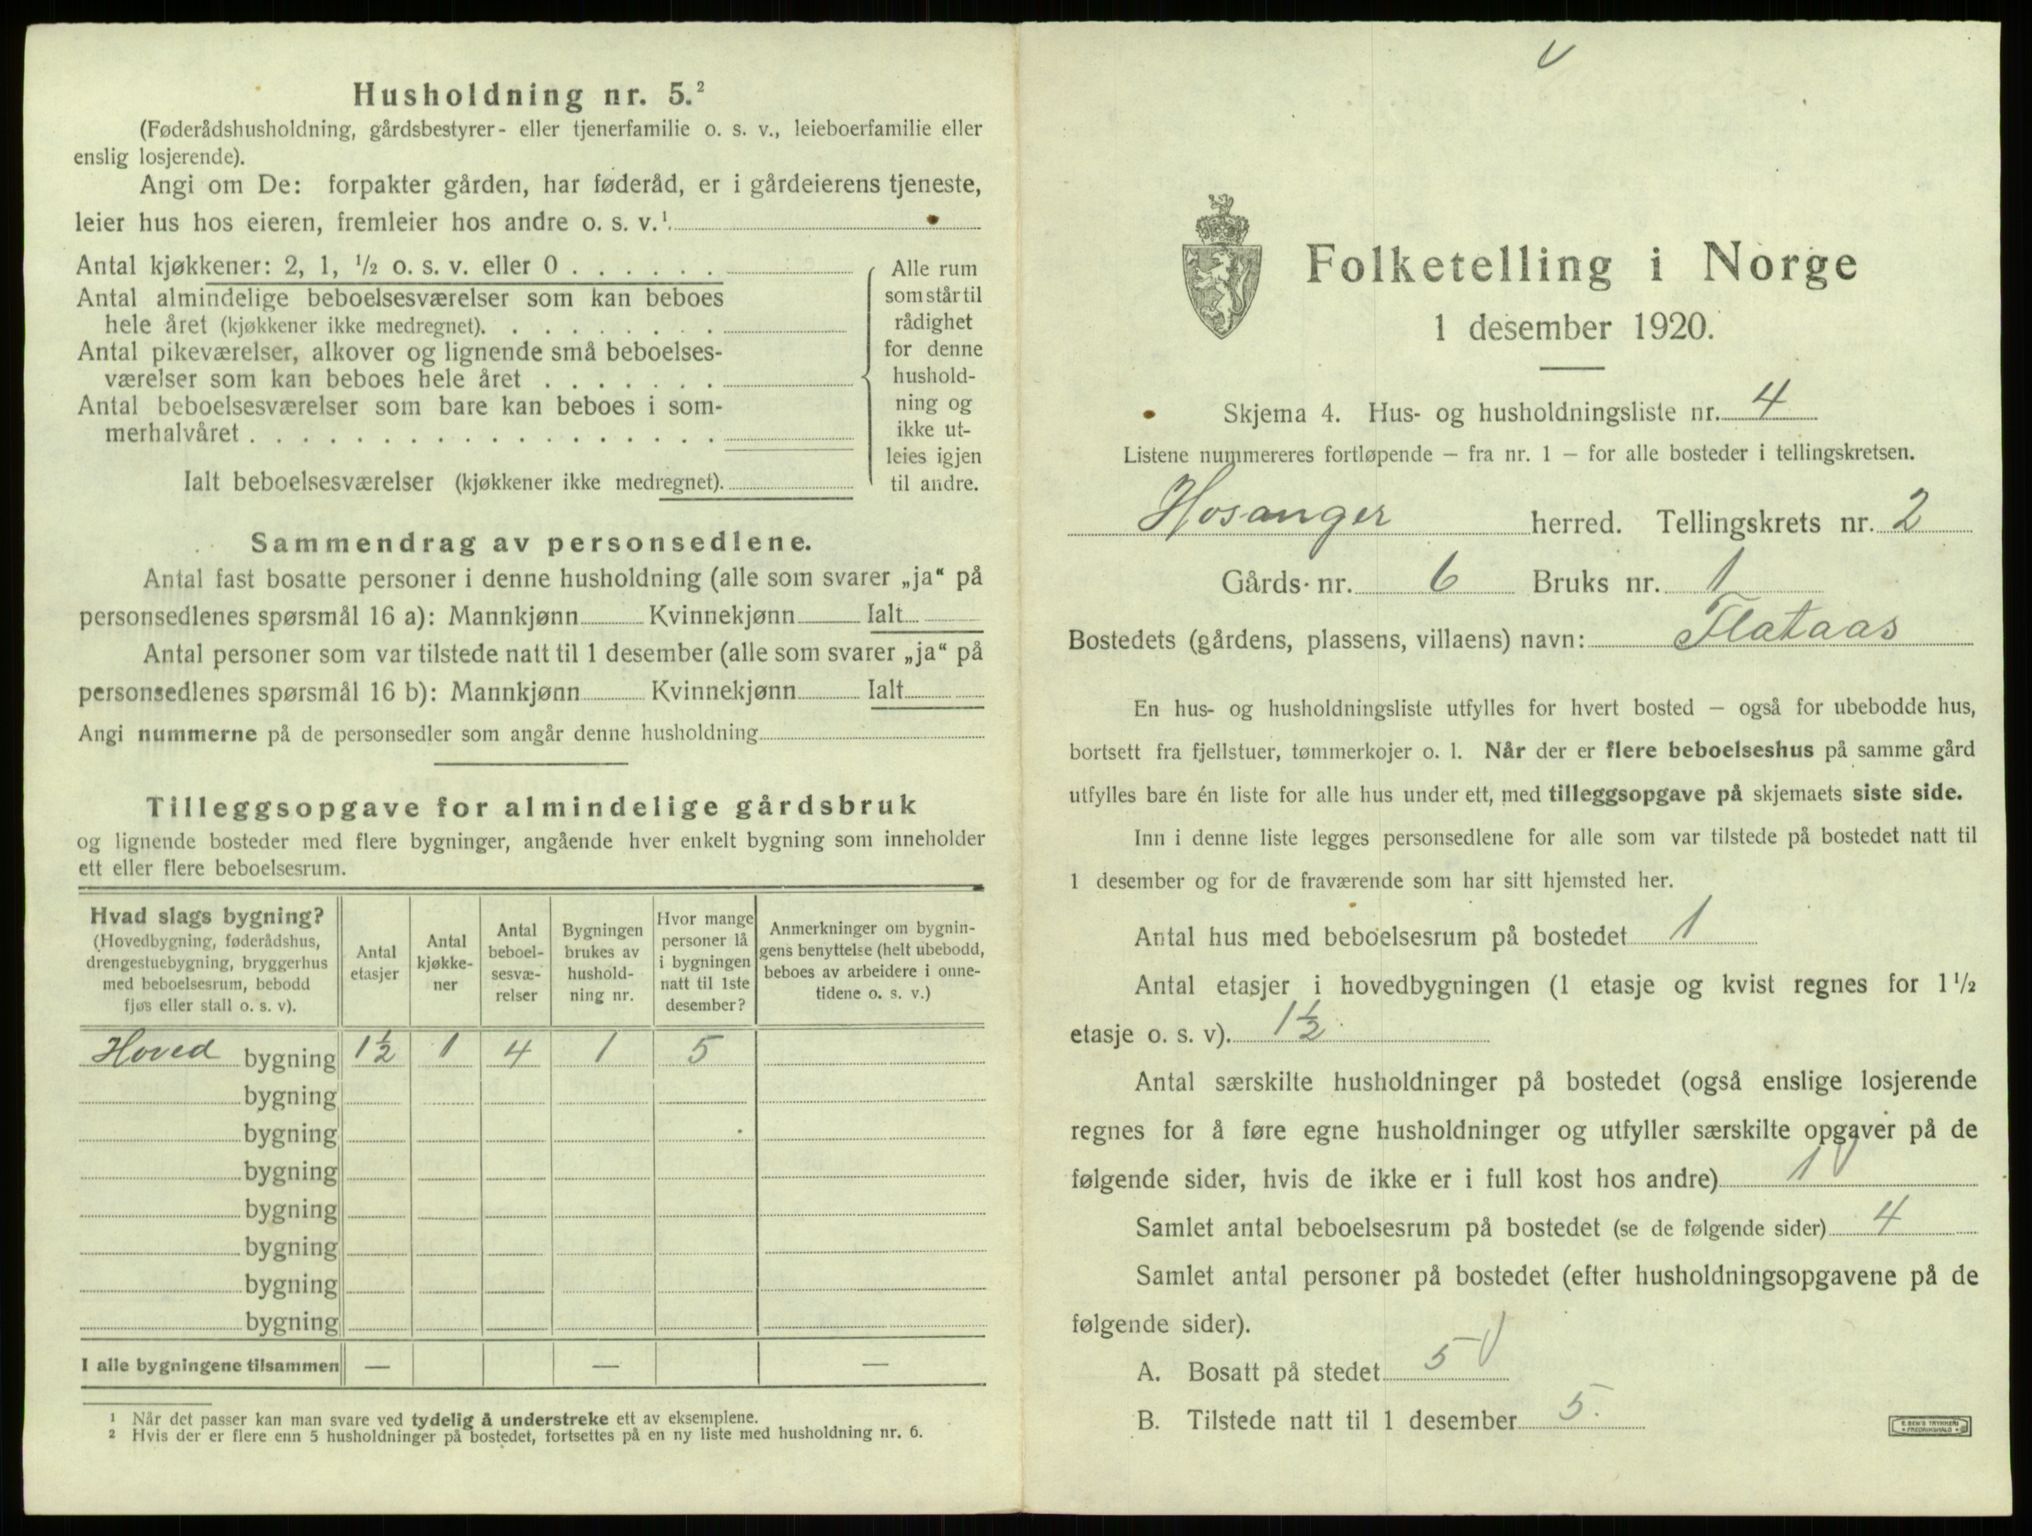 Husholdning nr. 5.²
(Føderådshusholdning, gårdsbestyrer- eller tjenerfamilie o. s. v., leieboerfamilie eller
enslig losjerende).
Angi om De: forpakter gården, har føderåd, er i gårdeierens tjeneste,
leier hus hos eieren, fremleier hos andre o. s. v.¹
Antal kjøkkener: 2, 1, ½ o. s. v. eller 0 . . . . . .
Antal almindelige beboelsesværelser som kan beboes
hele året (kjøkkener ikke medregnet). . . . . . . . .
Antal pikeværelser, alkover og lignende små beboelses-
værelser som kan beboes hele året . . . . . . .
Antal beboelsesværelser som bare kan beboes i som-
merhalvåret . . . . . . . . . . . . . . . . . .
Ialt beboelsesværelser (kjøkkener ikke medregnet).
Alle rum
som står til
rådighet
for denne
hushold-
ning og
ikke ut-
leies igjen
til andre.
Sammendrag av personsedlene.
Antal fast bosatte personer i denne husholdning (alle som svarer „ja“ på
personsedlenes spørsmål 16 a): Mannkjønn Kvinnekjønn Ialt
Antal personer som var tilstede natt til 1 desember (alle som svarer „ja“ på
personsedlenes spørsmål 16 b): Mannkjønn Kvinnekjønn Ialt
Angi nummerne på de personsedler som angår denne husholdning
Tilleggsopgave for almindelige gårdsbruk
og lignende bosteder med flere bygninger, angående hver enkelt bygning som inneholder
ett eller flere beboelsesrum.
Hvad slags bygning?
(Hovedbygning, føderådshus,
drengestuebygning, bryggerhus
med beboelsesrum, bebodd
fjøs eller stall o. s. v).
Antal
etasjer
Antal
kjøkke-
ner
Antal
beboel-
sesvæ-
relser
Bygningen
brukes av
hushold-
ning nr.
Hvor mange
personer lå
i bygningen
natt til 1ste
desember?
Anmerkninger om bygnin-
gens benyttelse (helt ubebodd,
beboes av arbeidere i onne-
tidene o. s. v.)
Hoved bygning 1½ 1 4 1 5
bygning
bygning
bygning
bygning
bygning
bygning
bygning
I alle bygningene tilsammen — — —
¹ Når det passer kan man svare ved tydelig å understreke ett av eksemplene.
² Hvis der er flere enn 5 husholdninger på bostedet, fortsettes på en ny liste med husholdning nr. 6.
Folketelling i Norge
1 desember 1920.
Skjema 4. Hus- og husholdningsliste nr. 4
Listene nummereres fortløpende — fra nr. 1 — for alle bosteder i tellingskretsen.
Hosanger herred. Tellingskrets nr. 2
Gårds- nr. 6 Bruks nr. 1
Bostedets (gårdens, plassens, villaens) navn: Flataas
En hus- og husholdningsliste utfylles for hvert bosted — også for ubebodde hus,
bortsett fra fjellstuer, tømmerkojer o. l. Når der er flere beboelseshus på samme gård
utfylles bare én liste for alle hus under ett, med tilleggsopgave på skjemaets siste side.
Inn i denne liste legges personsedlene for alle som var tilstede på bostedet natt til
1 desember og for de fraværende som har sitt hjemsted her.
Antal hus med beboelsesrum på bostedet 1
Antal etasjer i hovedbygningen (1 etasje og kvist regnes for 1½
etasje o. s. v). 1½
Antal særskilte husholdninger på bostedet (også enslige losjerende
regnes for å føre egne husholdninger og utfyller særskilte opgaver på de
følgende sider, hvis de ikke er i full kost hos andre) 1
Samlet antal beboelsesrum på bostedet (se de følgende sider) 4
Samlet antal personer på bostedet (efter husholdningsopgavene på de
følgende sider).
A. Bosatt på stedet 5
B. Tilstede natt til 1 desember 5.